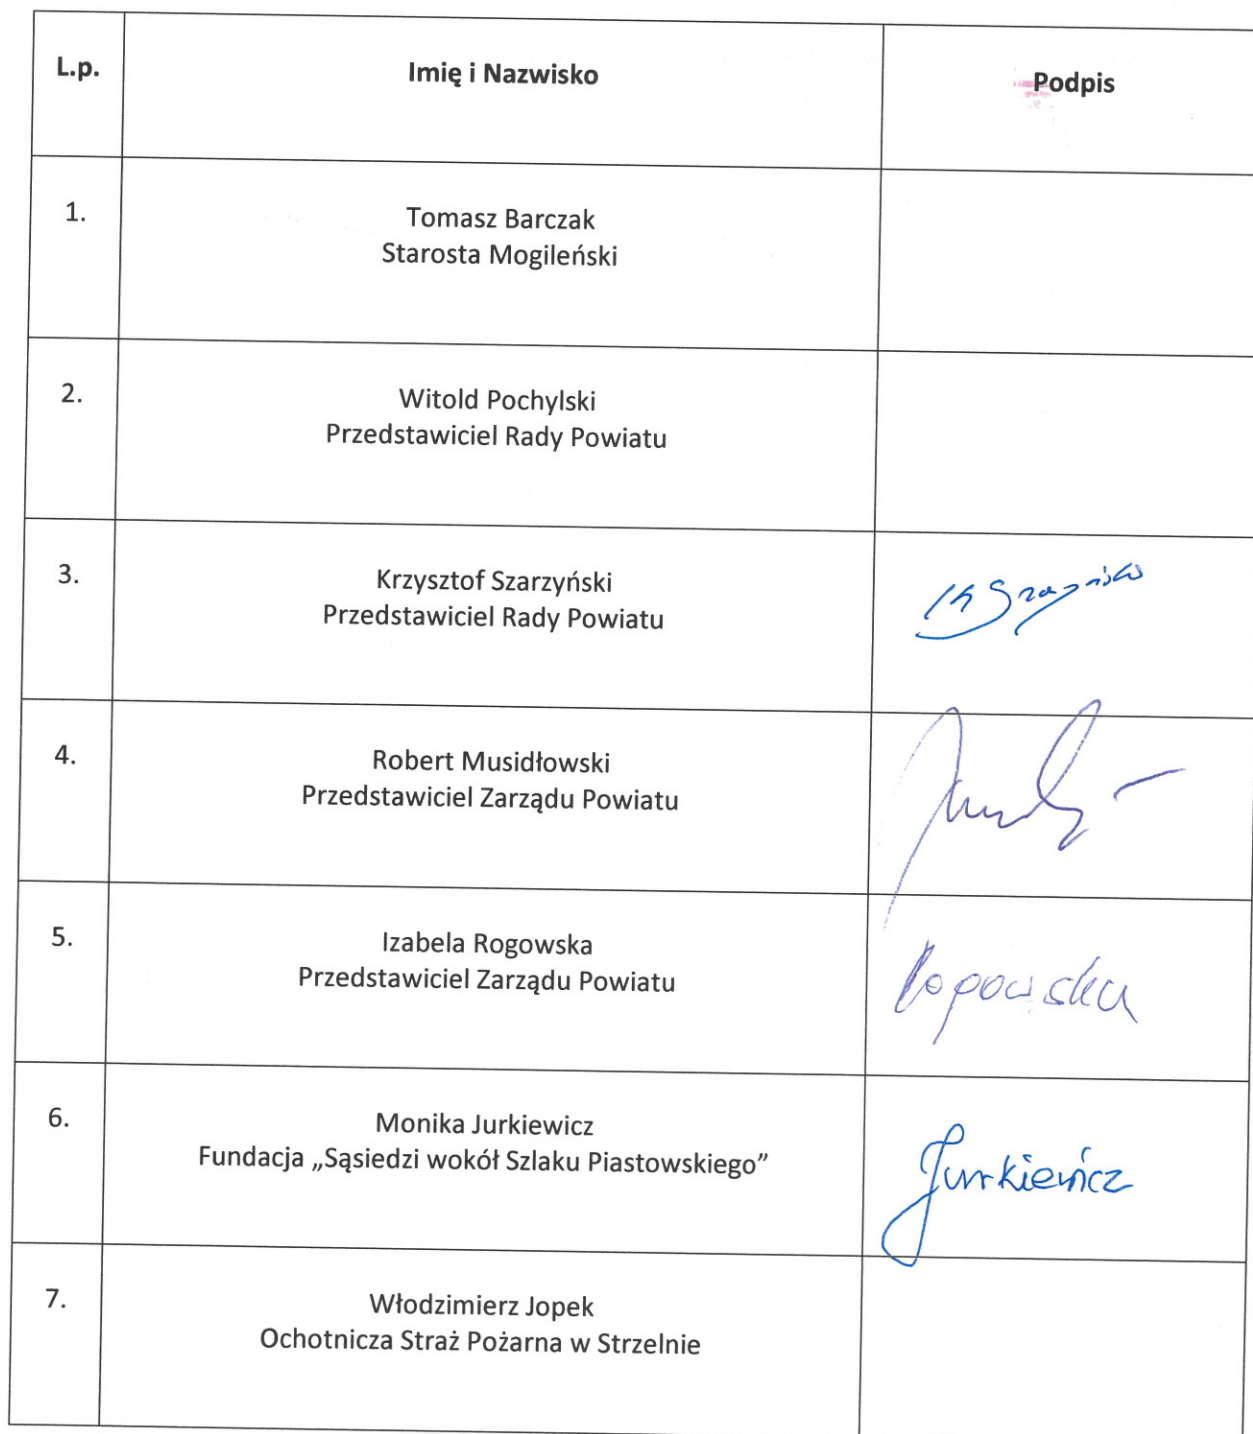 L.p. Imię i Nazwisko Podpis
1. Tomasz Barczak
Starosta Mogileński
2. Witold Pochylski
Przedstawiciel Rady Powiatu
3. Krzysztof Szarzyński
Przedstawiciel Rady Powiatu
4. Robert Musidłowski
Przedstawiciel Zarządu Powiatu
5. Izabela Rogowska
Przedstawiciel Zarządu Powiatu
Rogowska
6. Monika Jurkiewicz
Fundacja „Sąsiedzi wokół Szlaku Piastowskiego”
Jurkiewicz
7. Włodzimierz Jopek
Ochotnicza Straż Pożarna w Strzelnie